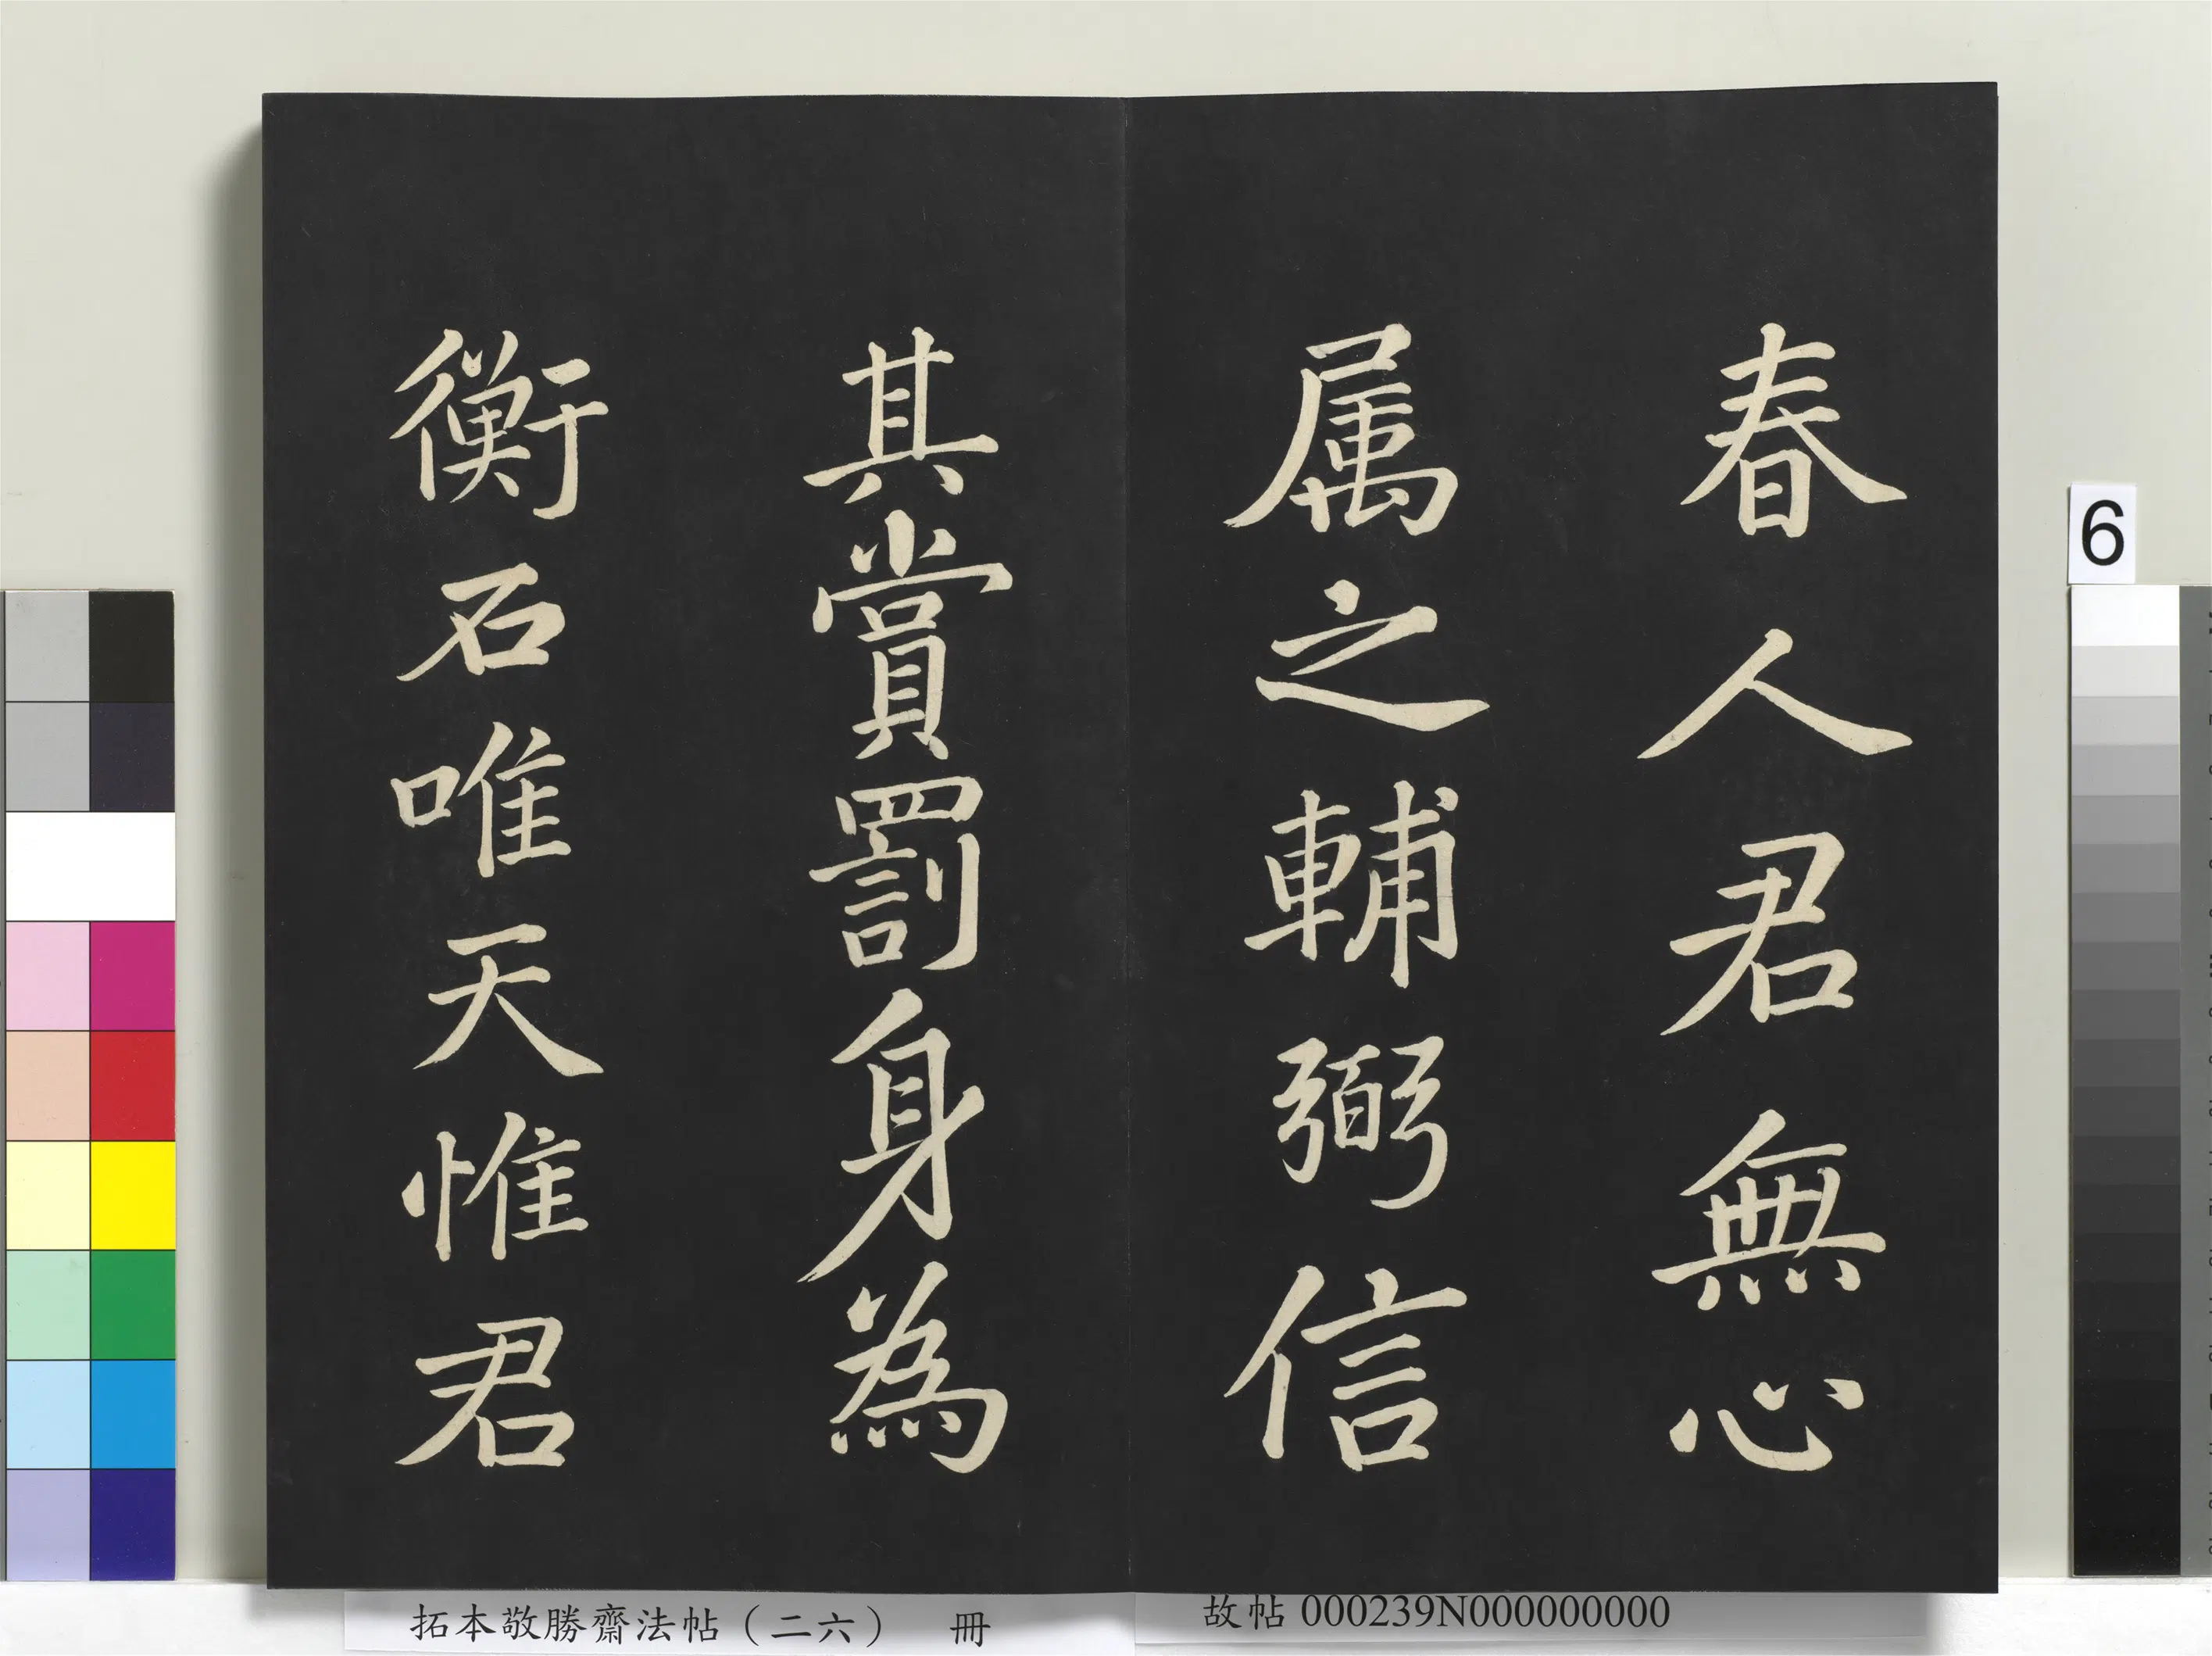 春人君無心
属之輔弼信
其賞罰身為
衡石唯天惟
君
拓本敬勝齋法帖（二六） 冊
故帖 000239N000000000
6